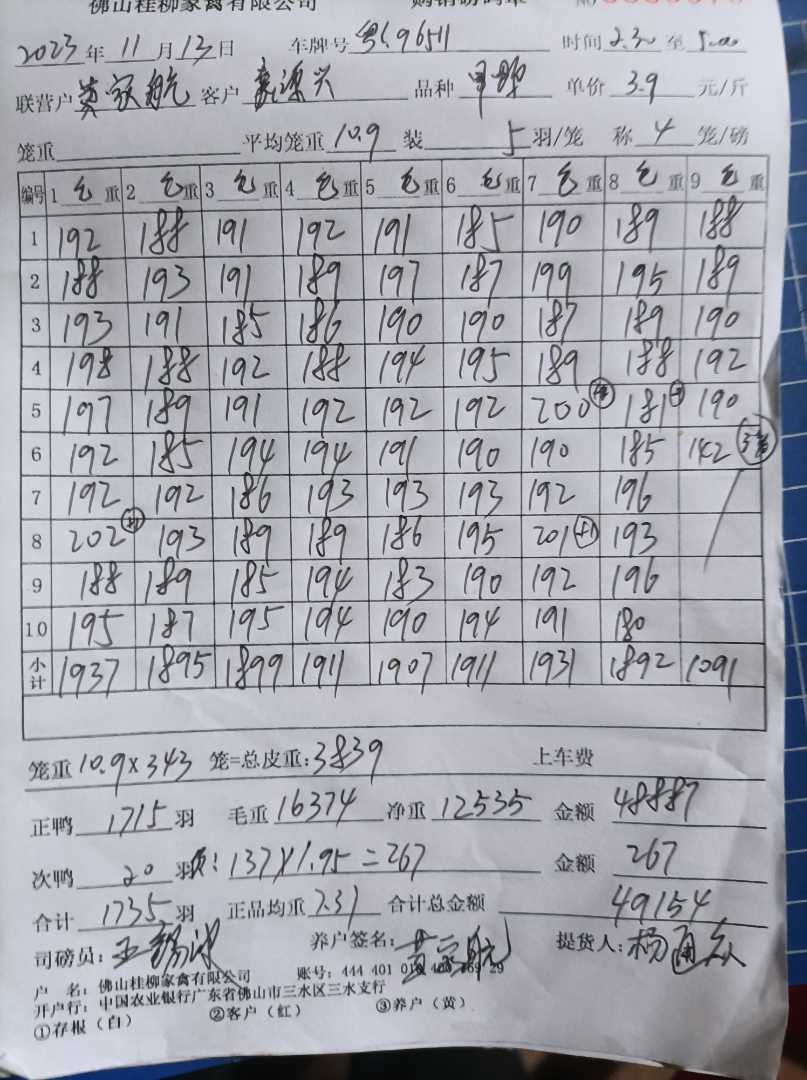 佛山桂柳家禽有限公司
2023年11月13日 车牌号 粤 96511 时间 2.30 至 5.00
联营户 黄家航 客户 源兴 品种 单价 3.9 元/斤
笼重 平均笼重 10.9 装 5 羽/笼 称 4 笼/磅
编号 1 毛重 2 毛重 3 毛重 4 毛重 5 毛重 6 毛重 7 毛重 8 毛重 9 毛重
1 192 188 191 192 191 185 190 189 188
2 188 193 191 189 197 187 199 195 189
3 193 191 185 186 190 190 187 189 190
4 198 188 192 188 194 195 189 188 192
5 197 189 191 192 192 192 200 181 190
6 192 185 194 194 191 190 190 185 142
7 192 192 186 193 193 193 192 196
8 202 193 189 189 186 195 201 +1 193
9 188 189 185 194 183 190 192 196
10 195 187 195 194 190 194 191 180
小计 1937 1895 1899 1911 1907 1911 1931 1892 1091
笼重 10.9×343 笼=总皮重:3839 上车费
正鸭 1715 羽 毛重 16374 净重 12535 金额 48887
次鸭 20 羽 137×1.95=267 金额 267
合计 1735 羽 正品均重 7.31 合计总金额 49154
司磅员: 王 养户签名: 黄家航 提货人: 杨通
户 名: 佛山桂柳家禽有限公司 账号: 444 401 29
开户行: 中国农业银行广东省佛山市三水区三水支行
①存根(白) ②客户(红) ③养户(黄)